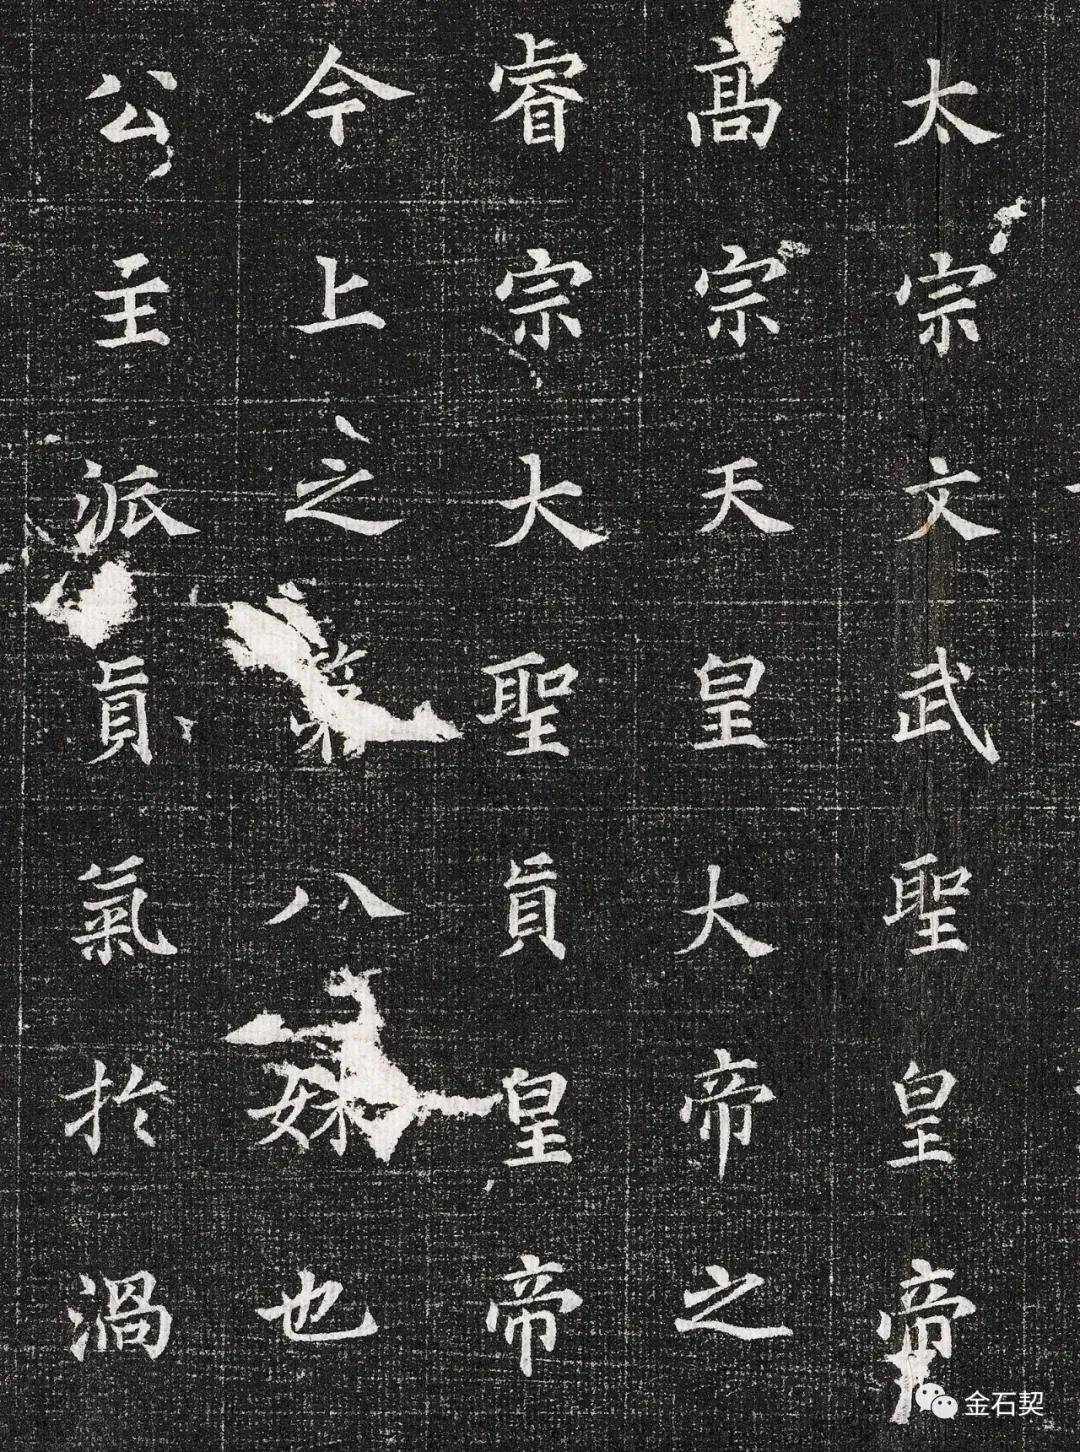 太宗文武聖皇帝
髙宗天皇大帝之
睿宗大聖真皇帝
今上之第八妹也
公主派真氣於渦
金石契